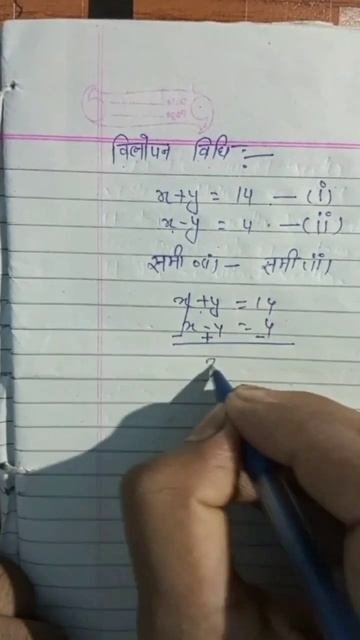 विलोपन विधि :—
x+y = 14 — (i)
x-y = 4 . — (ii)
समी (i) — समी (ii)
x + y = 14
x - y = 4
- + -
2